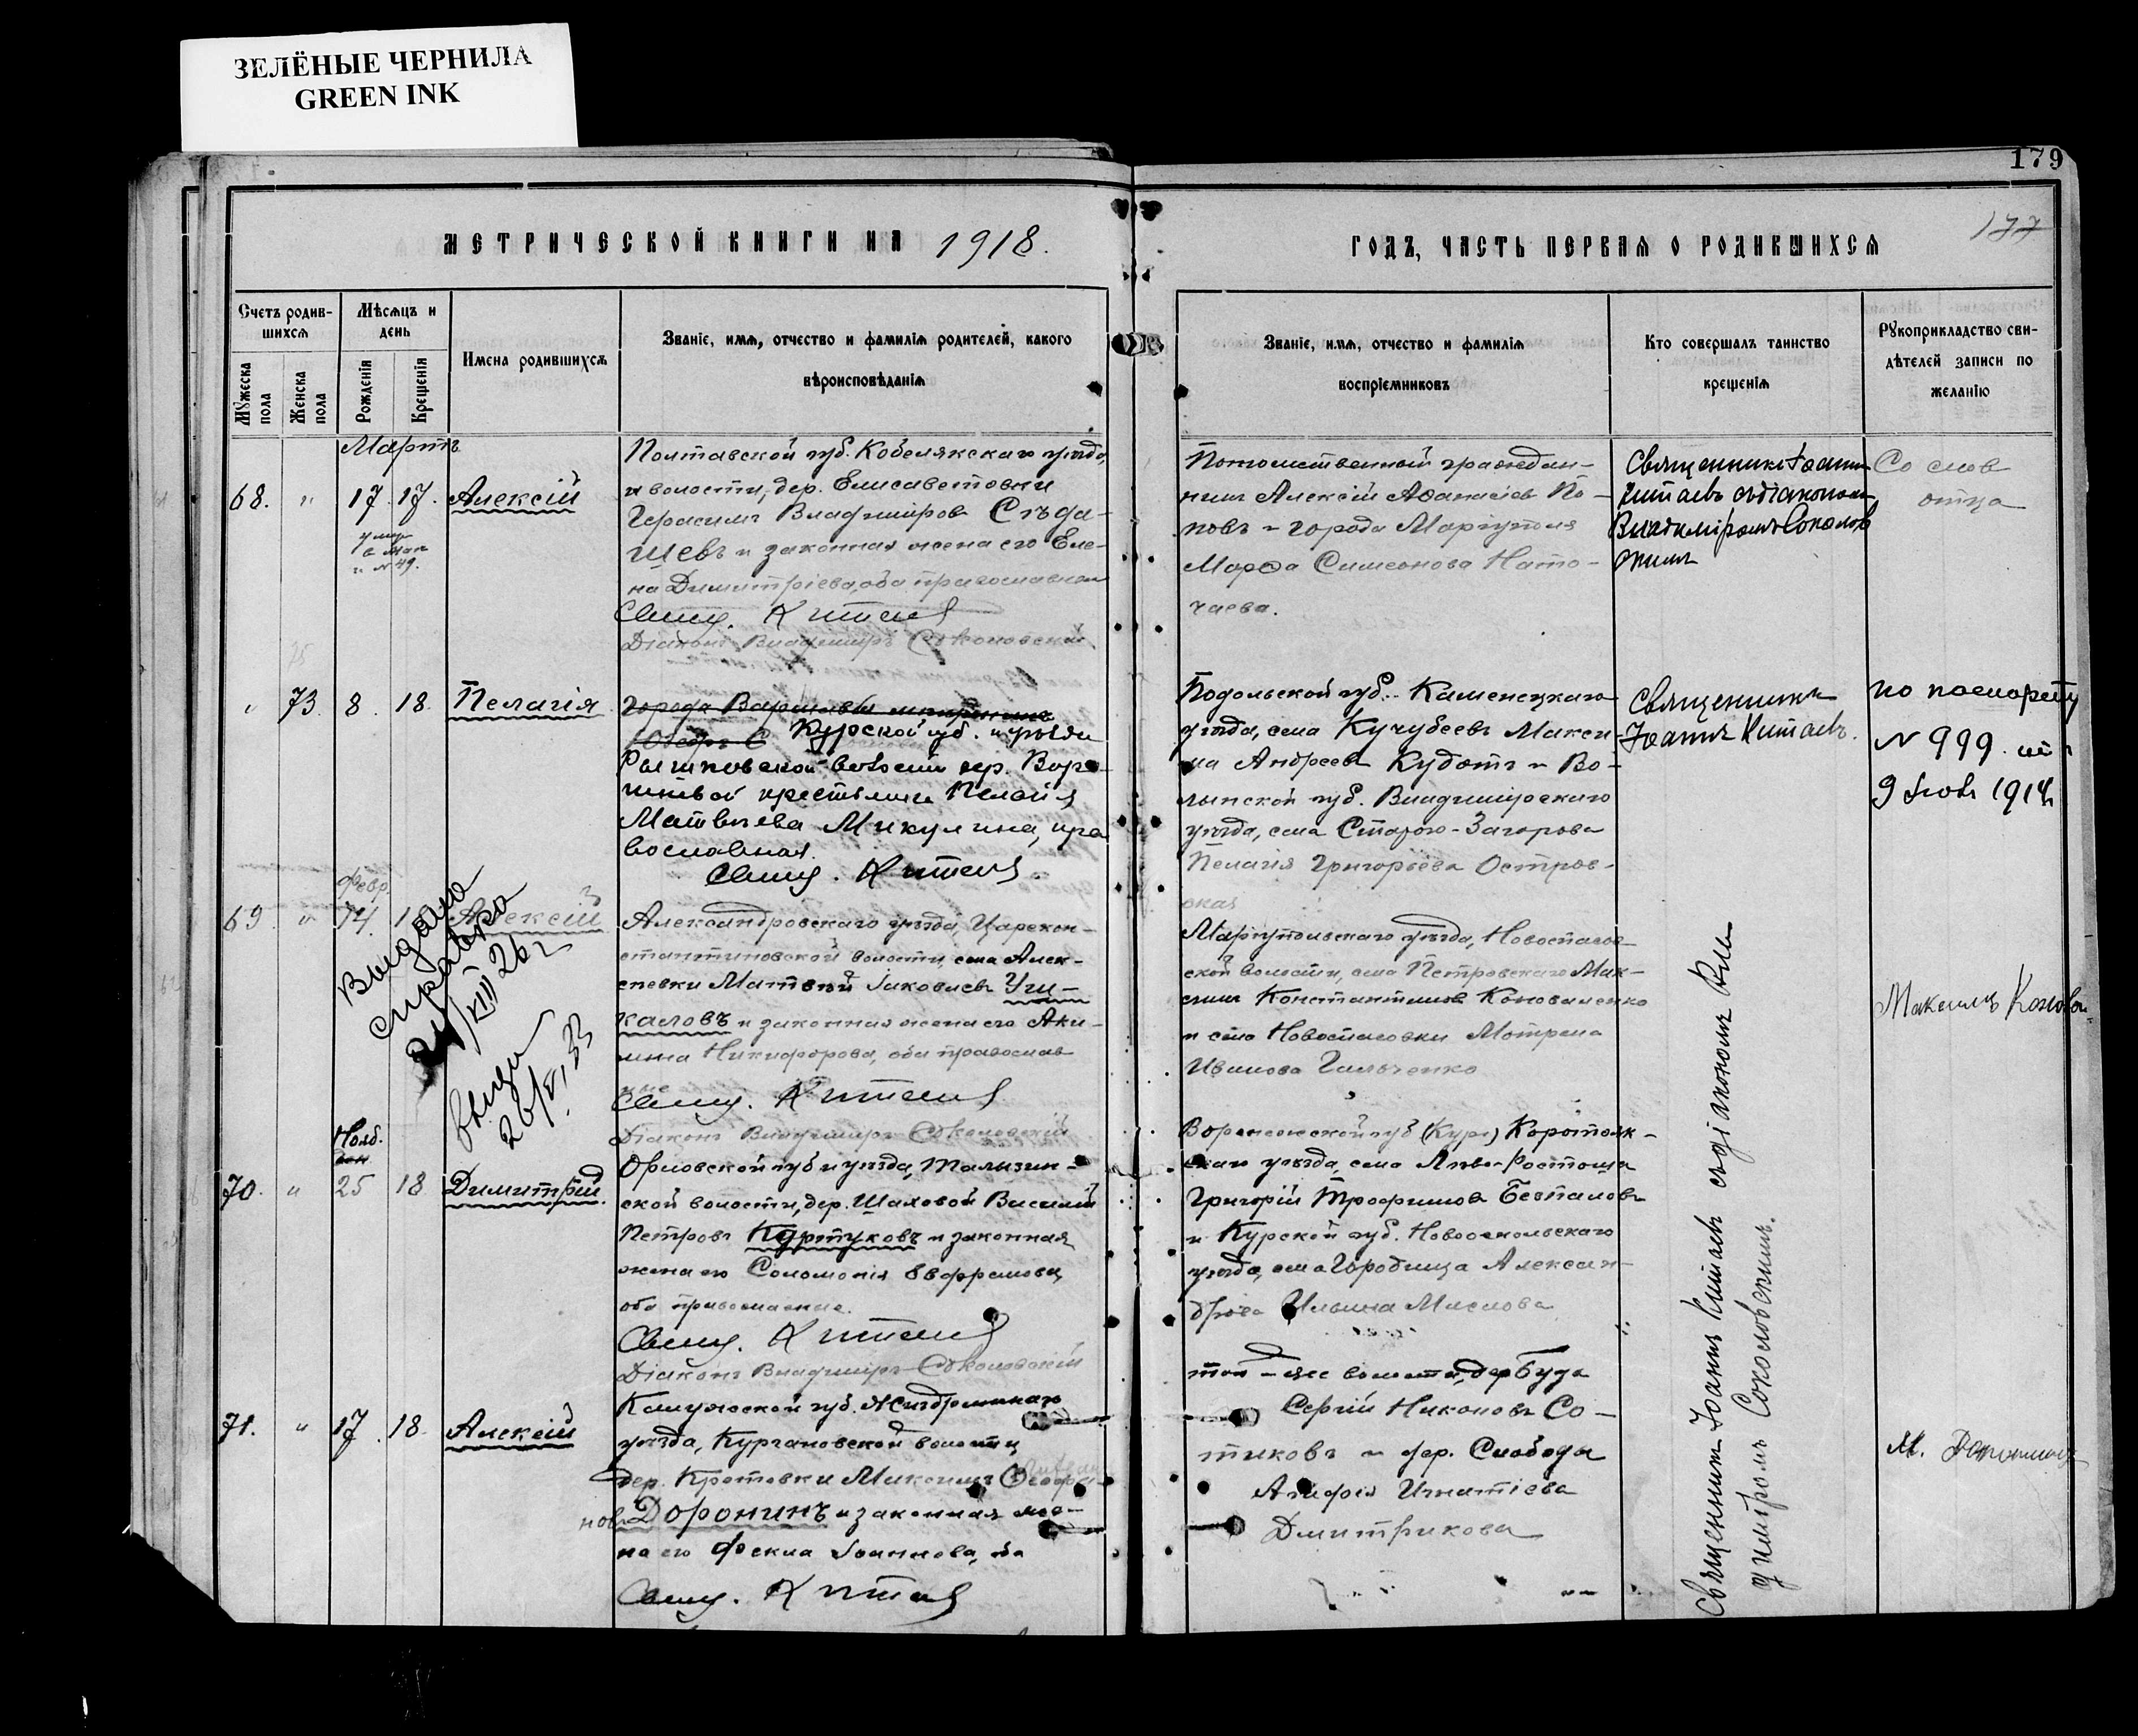 ЗЕЛЁНЫЕ ЧЕРНИЛА
GREEN INK
179
177
МЕТРИЧЕСКОЙ КНИГИ НА 1918.
ГОДЪ, ЧАСТЬ ПЕРВАЯ О РОДИВШИХСЯ
Счетъ родив-
шихся
Мѣсяцъ и
день
Имена родившихся
Званіе, имя, отчество и фамилія родителей, какого
вѣроисповѣданія
Мужеска
пола
Женска
пола
Рожденія
Крещенія
Званіе, имя, отчество и фамилія
воспріемниковъ
Кто совершалъ таинство
крещенія
Рукоприкладство сви-
дѣтелей записи по
желанію
Мартъ
68. " 17. 17. Алексій
№ 49.
Полтавской губ. Кобелякскаго уѣзда,
и волости, дер. Елисаветовки
Герасимъ Владиміров Слѣда-
щевъ и законная жена его Еле-
на Димитріева, оба православные
Свящ. Китаев
Діаконъ Владиміръ Соколовскій
Потомственный граждан-
нинъ Алексій Аѳанасіев По-
повъ и города Маріуполя
Марѳа Симеонова Нато-
чаева.
Священникъ Іоаннъ
Китаевъ съ діакономъ
Владиміромъ Соколов
скимъ
Со слов
отца
" 73. 8. 18. Пелагія
города Варшавы
Курской губ. и уѣзда
волости дер.
крестьянка Пелагія
Матвѣева Микулина, пра
вославная.
Свящ. Китаев
Подольской губ. Каменецкаго
уѣзда, села Кучубеевъ Макси-
ма Андреев Кудотъ и Во-
лынской губ. Владимірскаго
уѣзда, села Старого-Загорова
Пелагія Григорьева Остров-
ская
Священникъ
Іоаннъ Китаевъ.
по паспорту
№ 999
9
Февр.
69. " 14. 18 Алексій
Выдана
справка
26 г
Александровскаго уѣзда, Царекон-
стантиновской волости, села Алек-
сеевки Матвѣй Іаковлевъ Ущ-
каловъ и законная жена его Аки-
лина Никифорова, оба православ
ные
Свящ. Китаев
Діаконъ Владиміръ Соколовскій
Маріупольскаго уѣзда, Новоспасов-
ской волости, села Петровскаго Мак-
симъ Константинов Коноваленко
и села Новоспасовки Мотрена
Иванова Гальченко
Максимъ Конова-
Нояб.
70. " 25 18 Димитрій.
Орловской губ и уѣзда,
ской волости, дер. Шаховой Василій
Петровъ Куртуковъ и законная
жена его Соломонія
оба православные.
Свящ. Китаев
Діаконъ Владиміръ Соколовскій
Воронежской губ (Курс) Коротояк-
скаго уѣзда, села
Григорій Трофимов Безпаловъ
и Курской губ. Новооскольскаго
уѣзда, села Городища Алексан-
дра Ильина Маслова
71. " 17. 18. Алексій
Калужской губ. Жиздринскаго
уѣзда, Кургановской волости
дер. Кротовки Максимъ Ѳеофа-
новъ Доронинъ и законная же-
на его Ѳекла Іоаннова, оба
Свящ. Китаев
той-же волости, дер Буда
Сергій Никоновъ Со-
тиковъ и дер. Слободы
Агафія Игнатіева
Дмитрикова
М.
Священникъ Іоаннъ Китаевъ съ діакономъ Вла-
диміромъ Соколовскимъ.